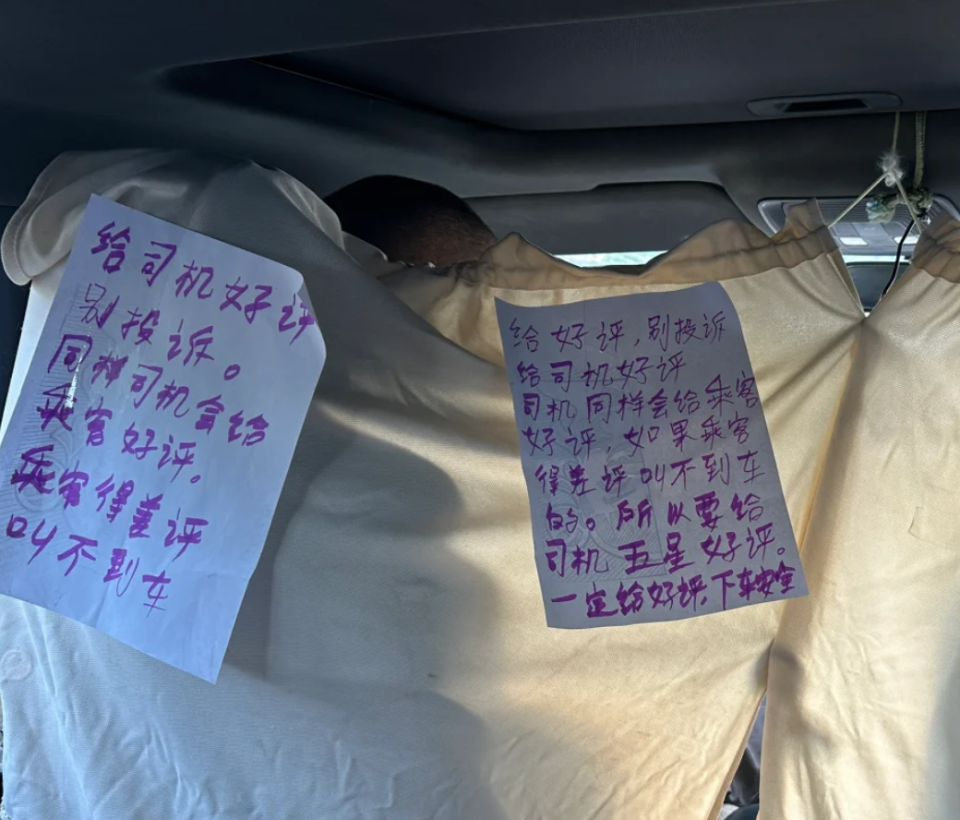 给司机好评
别投诉。
同样司机会给
乘客好评。
乘客得差评
叫不到车
给好评,别投诉
给司机好评
司机同样会给乘客
好评,如果乘客
得差评叫不到车
的。所以要给
司机五星好评。
一定给好评,下车安全